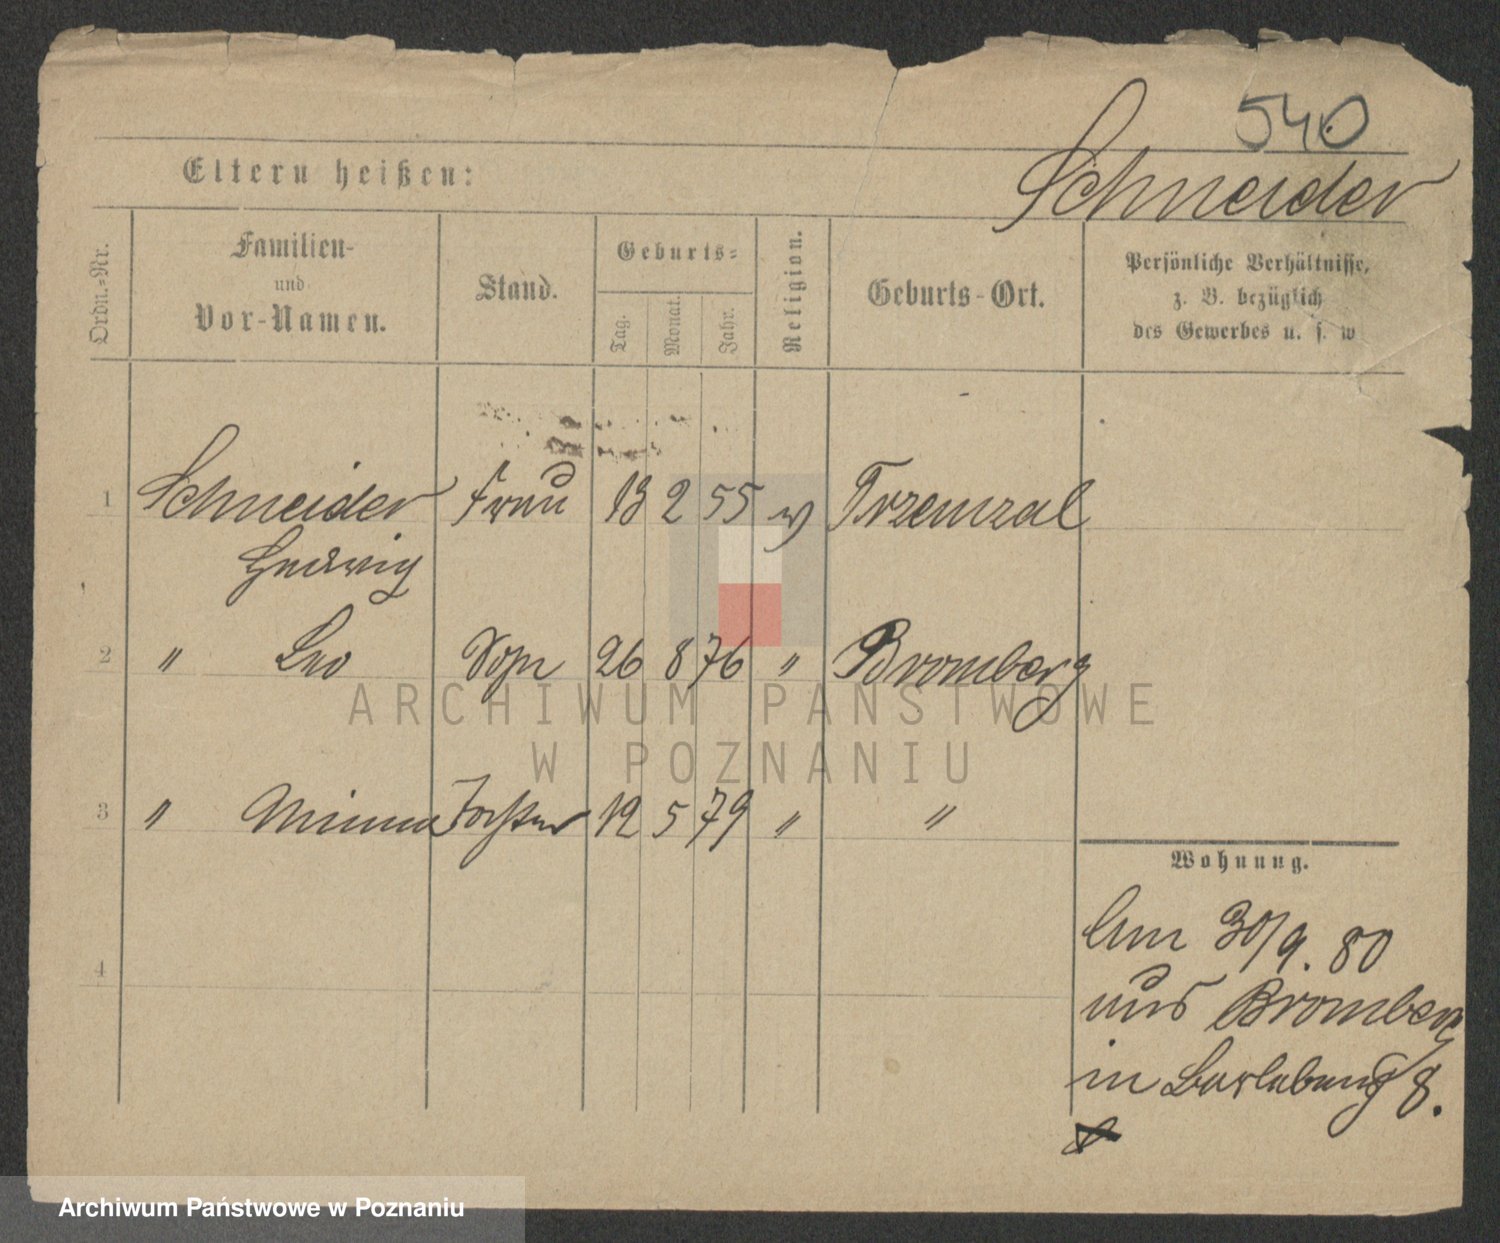 540
Eltern heißen:
Schneider
Ordn.-Nr.
Familien-
und
Vor-Namen.
Stand.
Geburts-
Tag.
Monat.
Jahr.
Religion.
Geburts-Ort.
Persönliche Verhältnisse,
z. B. bezüglich
des Gewerbes u. s. w
1 Schneider Frau 13 2 55 Trzemzal
Hedwig
2 " Leo Sohn 26 8 76 " Bromberg
3 " Minna Tochter 12 5 79 " "
Wohnung.
4
Am 30/9. 80
aus Bromberg
in 8.
ARCHIWUM PAŃSTWOWE
W POZNANIU
Archiwum Państwowe w Poznaniu